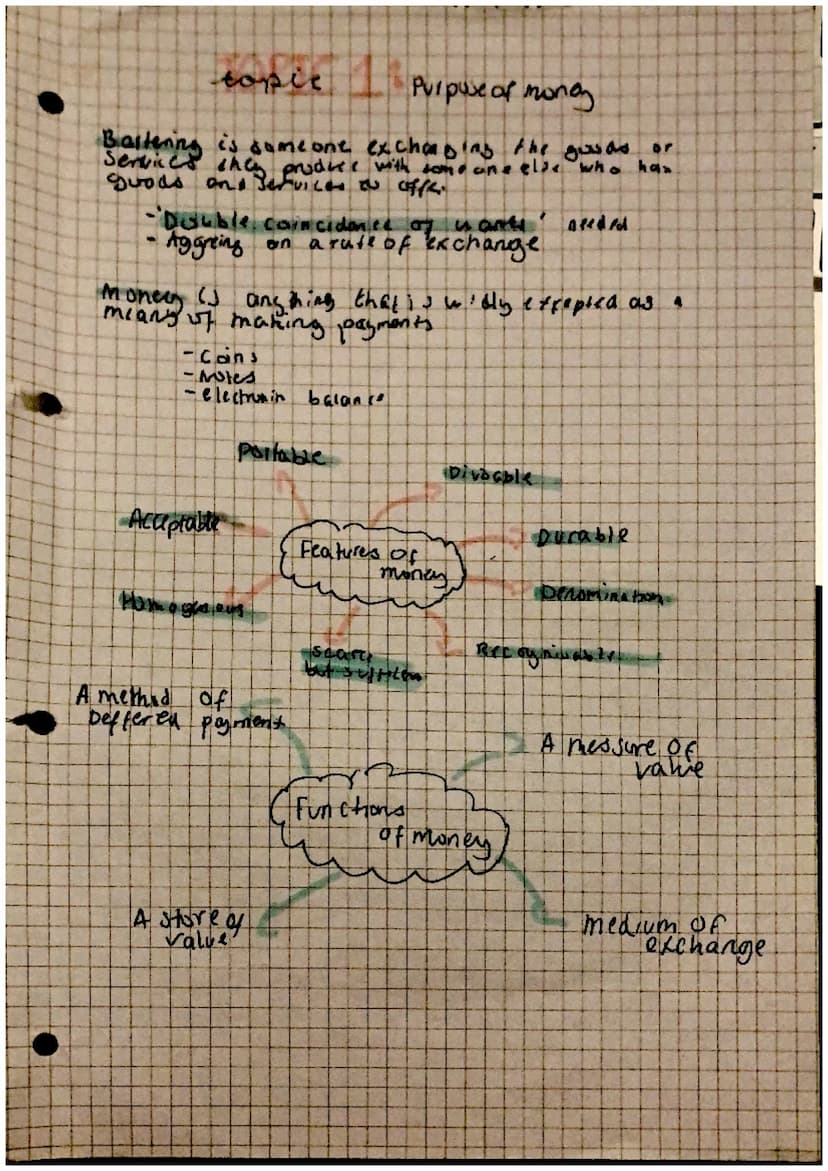 topic 1: Purpose of money
Bartering is someone exchanging the goods or
services they produce with someone else who has
goods and services to offer.
- 'Double coincidance of wants' needed
- Aggreing on a rate of exchange
Money is anything that is widly excepted as a
means of making payments
- Coins
- Notes
- electronic balance
Portable
Divisable
Acceptable
Durable
Features of
money
Denomination
Homogenous
Recognisable
scarce
but sufficient
A method of
Deffered payment
A messure of
value
Functions
of money
A store of
value
medium of
exchange